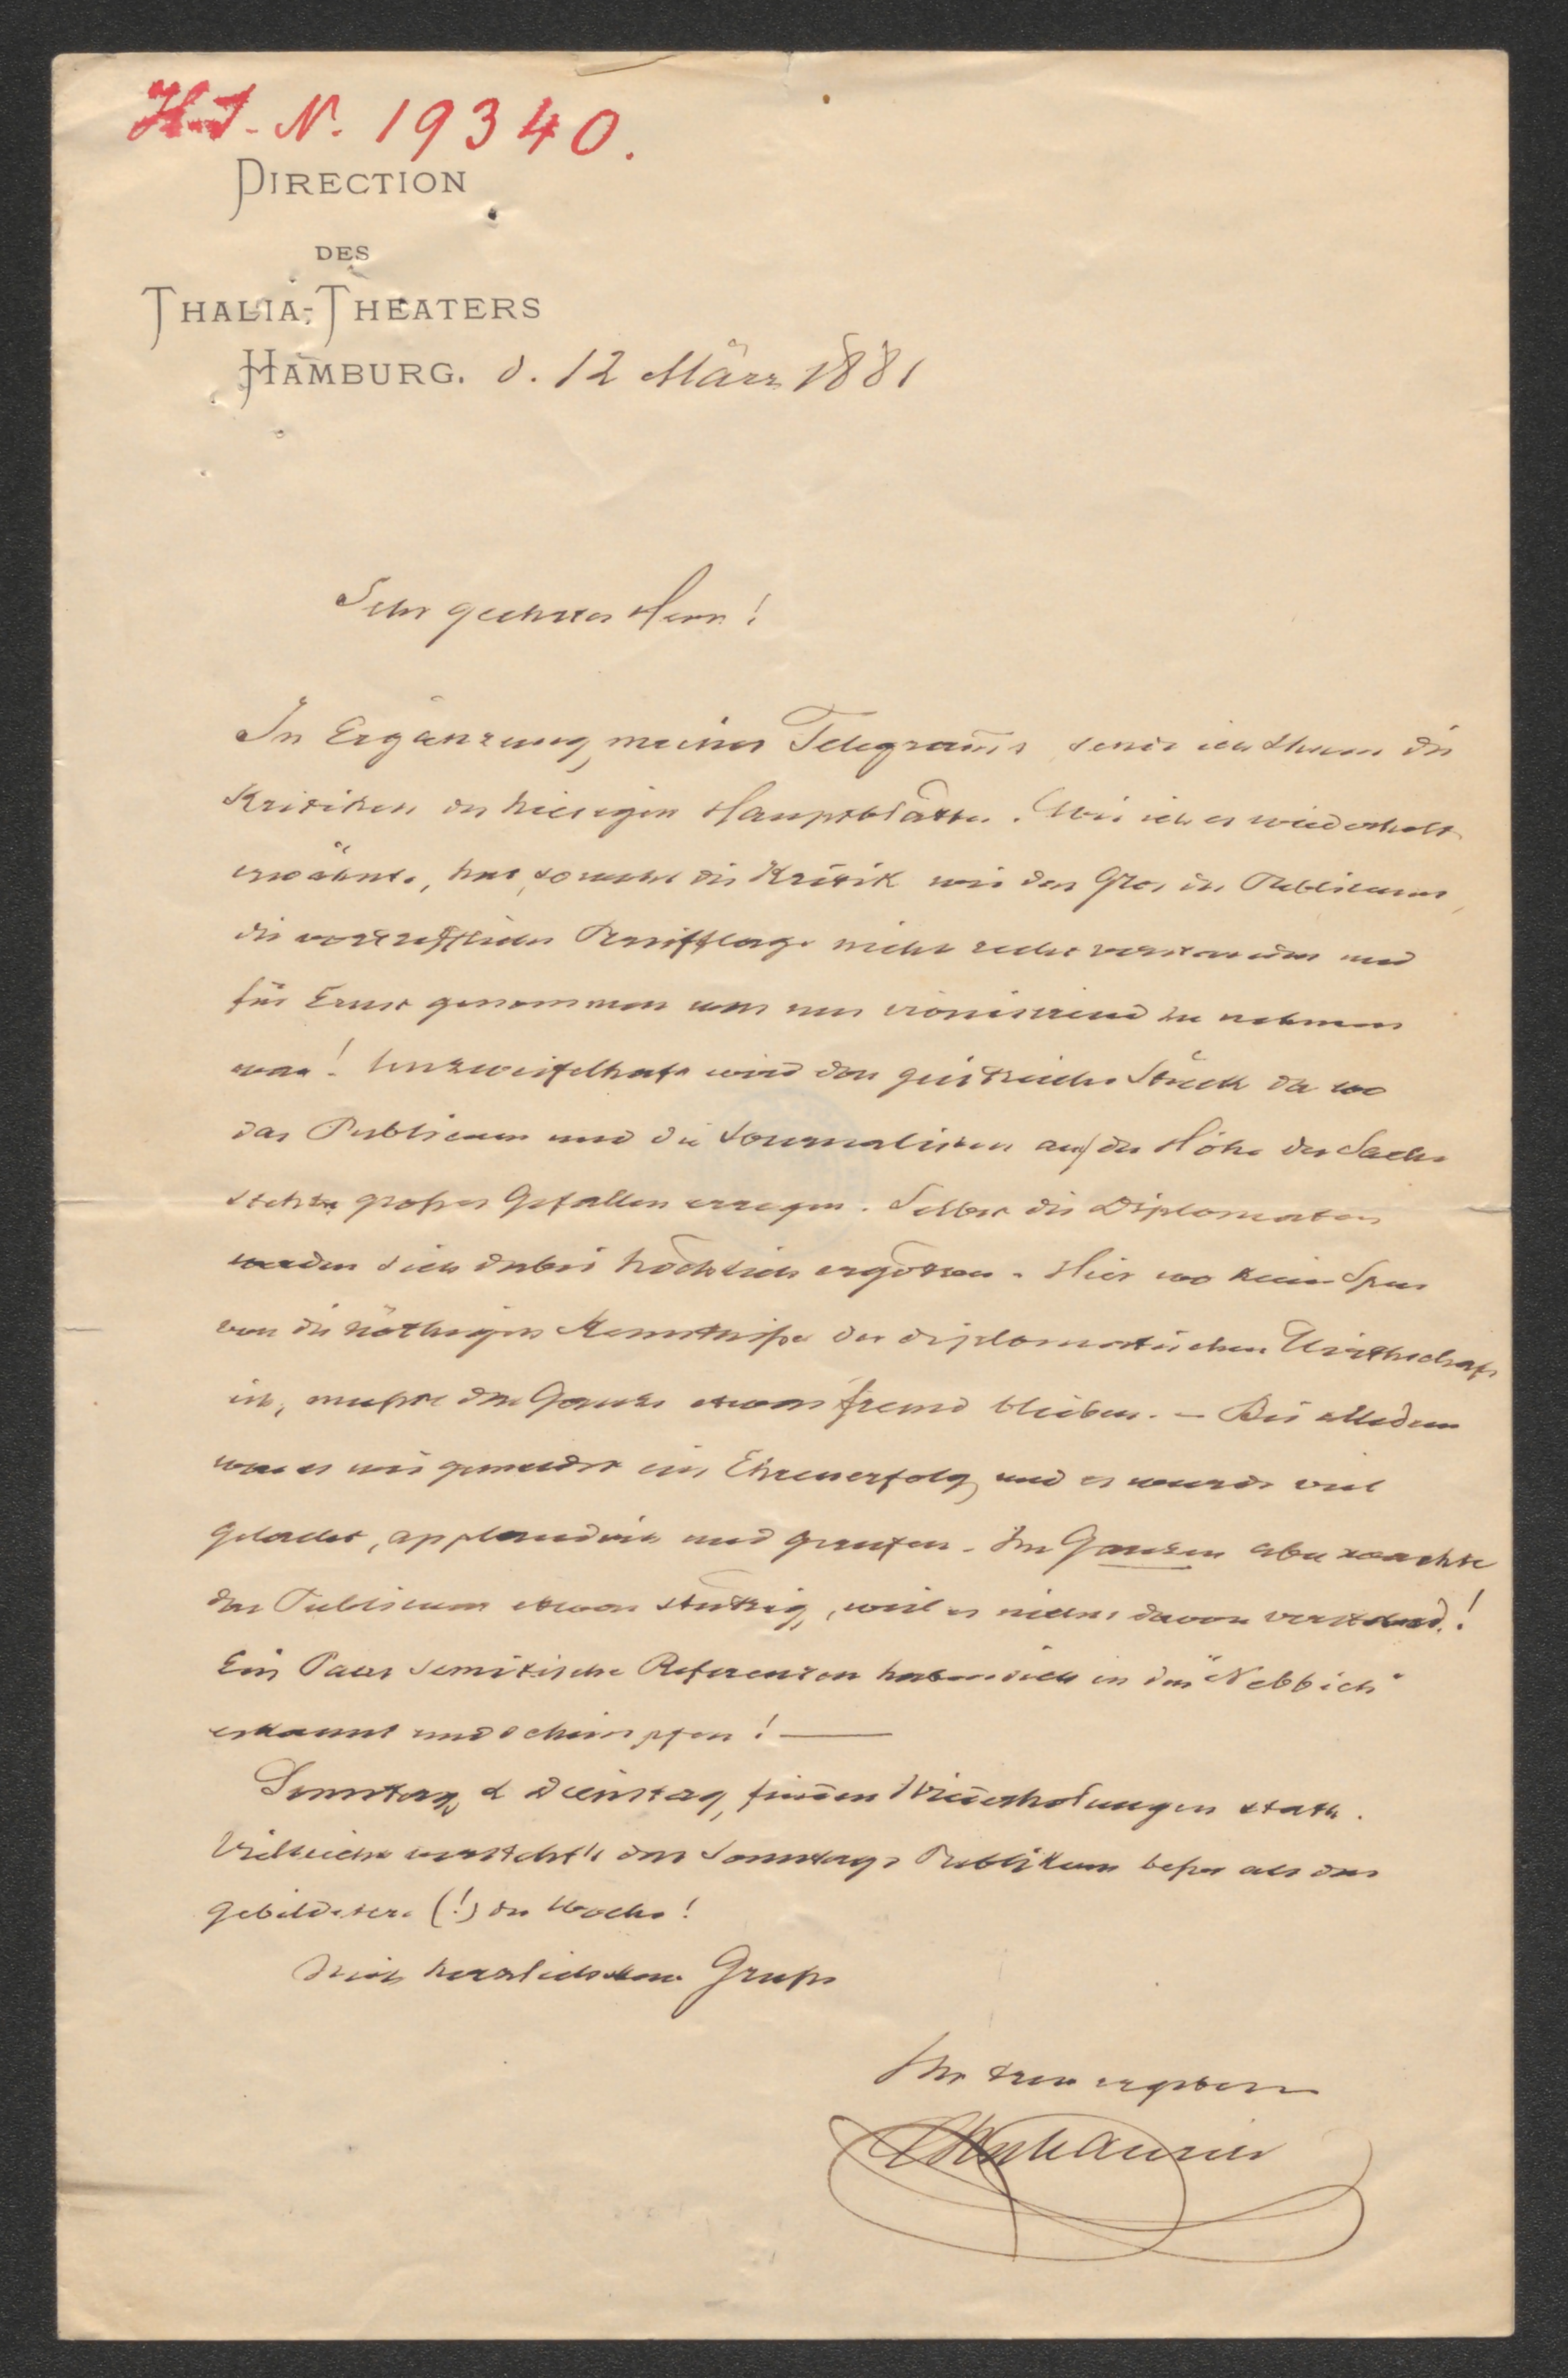 H.I.N. 19340.
DIRECTION
DES
THALIA-THEATERS
HAMBURG. d. 12 März 1881
Sehr geehrter Herr!
In Ergänzung meines Telegram̄s sende ich Ihnen die
Kritiken der hiesigen Hauptblätter. Wie ich es wiederholt
erwähnte, hat sowohl die Kritik wie das Gros des Publicums
die vortreffliche Persifflage nicht recht verstanden und
für Ernst genommen was nur ironisirend zu nehmen
war! Unzweifelhaft wird das geistreiche Stück da wo
das Publicum und die Journalisten auf der Höhe der Sache
stehen großes Gefallen erregen. Selbst die Diplomaten
werden sich dabei höchlich ergötzen. Hier wo keine Spur
von die nöthigen Kenntniße der diplomatischen Wirthschaft
ist, mußte das Ganze etwas fremd bleiben. — Bei alledem
war es wie gemeldet ein Ehrenerfolg und es wurde viel
gelacht, applaudirt und gerufen. Im Ganzen aber machte
das Publicum etwas stutzig, weil es nichts davon verstand!
Ein Paar semitische Referenten haben sich in den "Nebbich"
erkannt und schimpfen! —
Sonntag & Dienstag finden Wiederholungen statt.
Vielleicht versteht's das Sonntags Publikum beßer als das
gebildetere (!) der Woche!
Mit herzlichstem Gruße
Ihr treu ergebener